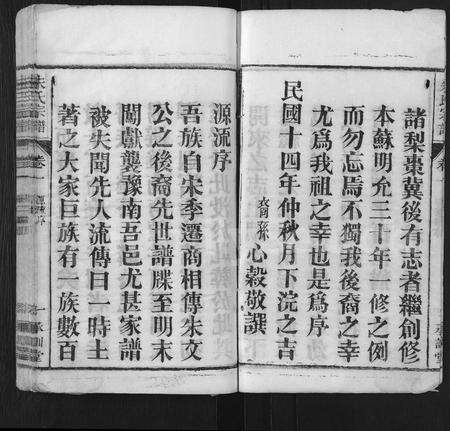 諸梨棗冀後有志者繼創修
本蘇明允三十年一修之例
而勿忘焉不獨我後裔之幸
尤爲我祖之幸也是爲序
民國十四年仲秋月下浣之吉
裔孫心穀敬譔
源流序
吾族自宋季遷商相傳朱文
公之後裔先世譜牒至明末
闖獻襲豫南吾邑尤甚家譜
被失聞先人流傳曰一時土
著之大家巨族有一族數百
源流序